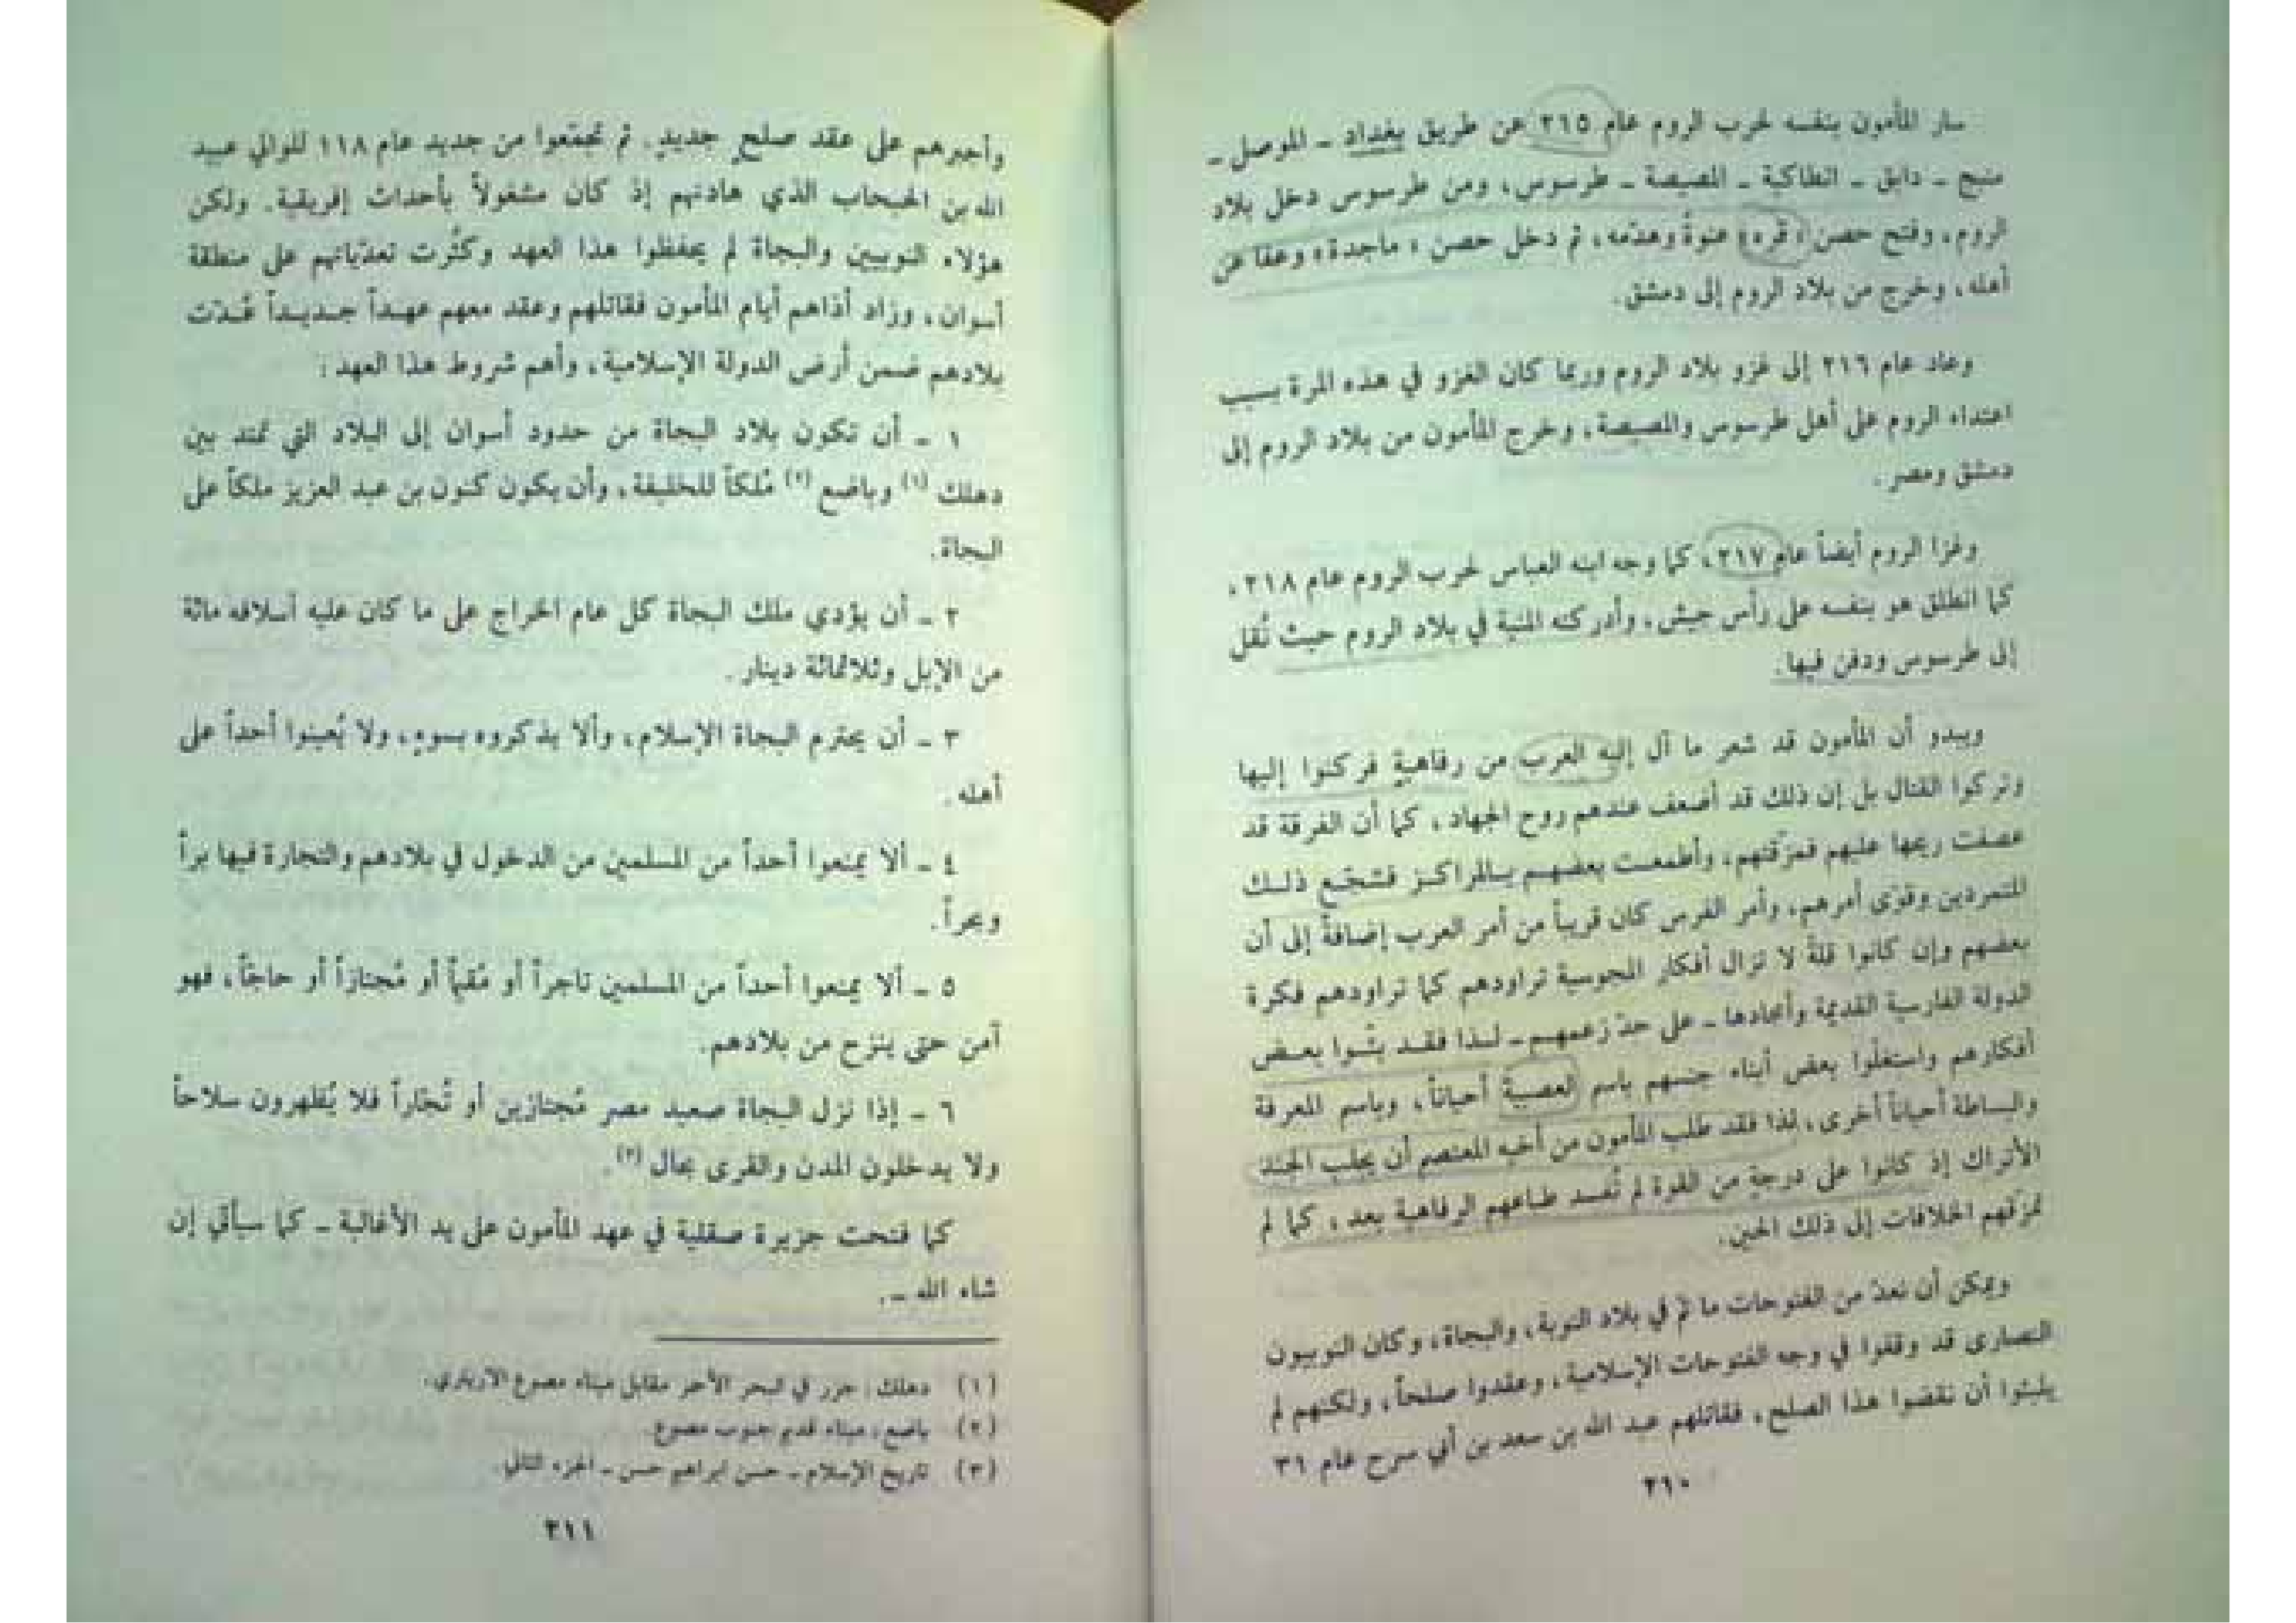 سار المأمون بنفسه لحرب الروم عام ٢١٥ عن طريق بغداد ـ الموصل ـ
منبج ـ دابق ـ انطاكية ـ المصيصة ـ طرسوس، ومن طرسوس دخل بلاد
الروم، وفتح حصن «قره» عنوةً وهدّمه، ثم دخل حصن «ماجدة» وعفا عن
أهله، وخرج من بلاد الروم إلى دمشق.
وعاد عام ٢١٦ إلى غزو بلاد الروم وربما كان الغزو في هذه المرة بسبب
اعتداء الروم على أهل طرسوس والمصيصة، وخرج المأمون من بلاد الروم إلى
دمشق ومصر.
وغزا الروم أيضاً عام ٢١٧، كما وجه ابنه العباس لحرب الروم عام ٢١٨،
كما انطلق هو بنفسه على رأس جيش، وأدركته المنية في بلاد الروم حيث نُقل
إلى طرسوس ودفن فيها.
ويبدو أن المأمون قد شعر ما آل إليه العرب من رفاهيةٍ فركنوا إليها
وتركوا القتال بل إن ذلك قد أضعف عندهم روح الجهاد، كما أن الفرقة قد
عصفت ريحها عليهم فمزّقتهم، وأطمعت بعضهم بالمراكز فشجّع ذلك
المتمردين وقوّى أمرهم، وأمر الفرس كان قريباً من أمر العرب إضافةً إلى أن
بعضهم وإن كانوا قلةً لا تزال أفكار المجوسية تراودهم كما تراودهم فكرة
الدولة الفارسية القديمة وأمجادها ـ على حدّ زعمهم ـ لذا فقد بثّوا بعض
أفكارهم واستغلّوا بعض أبناء جنسهم باسم العصبية أحياناً، وباسم المعرفة
والبساطة أحياناً أخرى، لذا فقد طلب المأمون من أخيه المعتصم أن يجلب الجند
الأتراك إذ كانوا على درجةٍ من القوة لم تُفسد طباعهم الرفاهية بعد، كما لم
تمزّقهم الخلافات إلى ذلك الحين.
ويمكن أن نعدّ من الفتوحات ما تمّ في بلاد النوبة، والبجاة، وكان النوبيون
النصارى قد وقفوا في وجه الفتوحات الإسلامية، وعقدوا صلحاً، ولكنهم لم
يلبثوا أن نقضوا هذا الصلح، فقاتلهم عبد الله بن سعد بن أبي سرح عام ٣١
٢١٠
وأجبرهم على عقد صلحٍ جديدٍ. ثم تجمّعوا من جديد عام ١١٨ للوالي عبيد
الله بن الحبحاب الذي هادنهم إذ كان مشغولاً بأحداث إفريقية. ولكن
هؤلاء النوبيين والبجاة لم يحفظوا هذا العهد وكثُرت تعدّياتهم على منطقة
أسوان، وزاد أذاهم أيام المأمون فقاتلهم وعقد معهم عهداً جديداً عُدّت
بلادهم ضمن أرض الدولة الإسلامية، وأهم شروط هذا العهد:
١ ـ أن تكون بلاد البجاة من حدود أسوان إلى البلاد التي تمتد بين
دهلك (١) وباضع (٢) مُلكاً للخليفة، وأن يكون كنون بن عبد العزيز ملكاً على
البجاة.
٢ ـ أن يؤدي ملك البجاة كل عام الخراج على ما كان عليه أسلافه مائة
من الإبل وثلاثمائة دينار.
٣ ـ أن يحترم البجاة الإسلام، وألا يذكروه بسوءٍ، ولا يُعينوا أحداً على
أهله.
٤ ـ ألا يمنعوا أحداً من المسلمين من الدخول في بلادهم والتجارة فيها براً
وبحراً.
٥ ـ ألا يمنعوا أحداً من المسلمين تاجراً أو مُقيماً أو مُجتازاً أو حاجّاً، فهو
آمن حتى ينزح من بلادهم.
٦ ـ إذا نزل البجاة صعيد مصر مُجتازين أو تُجّاراً فلا يُظهرون سلاحاً
ولا يدخلون المدن والقرى بحال (٣).
كما فتحت جزيرة صقلية في عهد المأمون على يد الأغالبة ـ كما سيأتي إن
شاء الله ـ.
(١) دهلك: جزر في البحر الأحمر مقابل ميناء مصوع الأريتري.
(٢) باضع: ميناء قديم جنوب مصوع.
(٣) تاريخ الإسلام ـ حسن إبراهيم حسن ـ الجزء الثاني.
٢١١